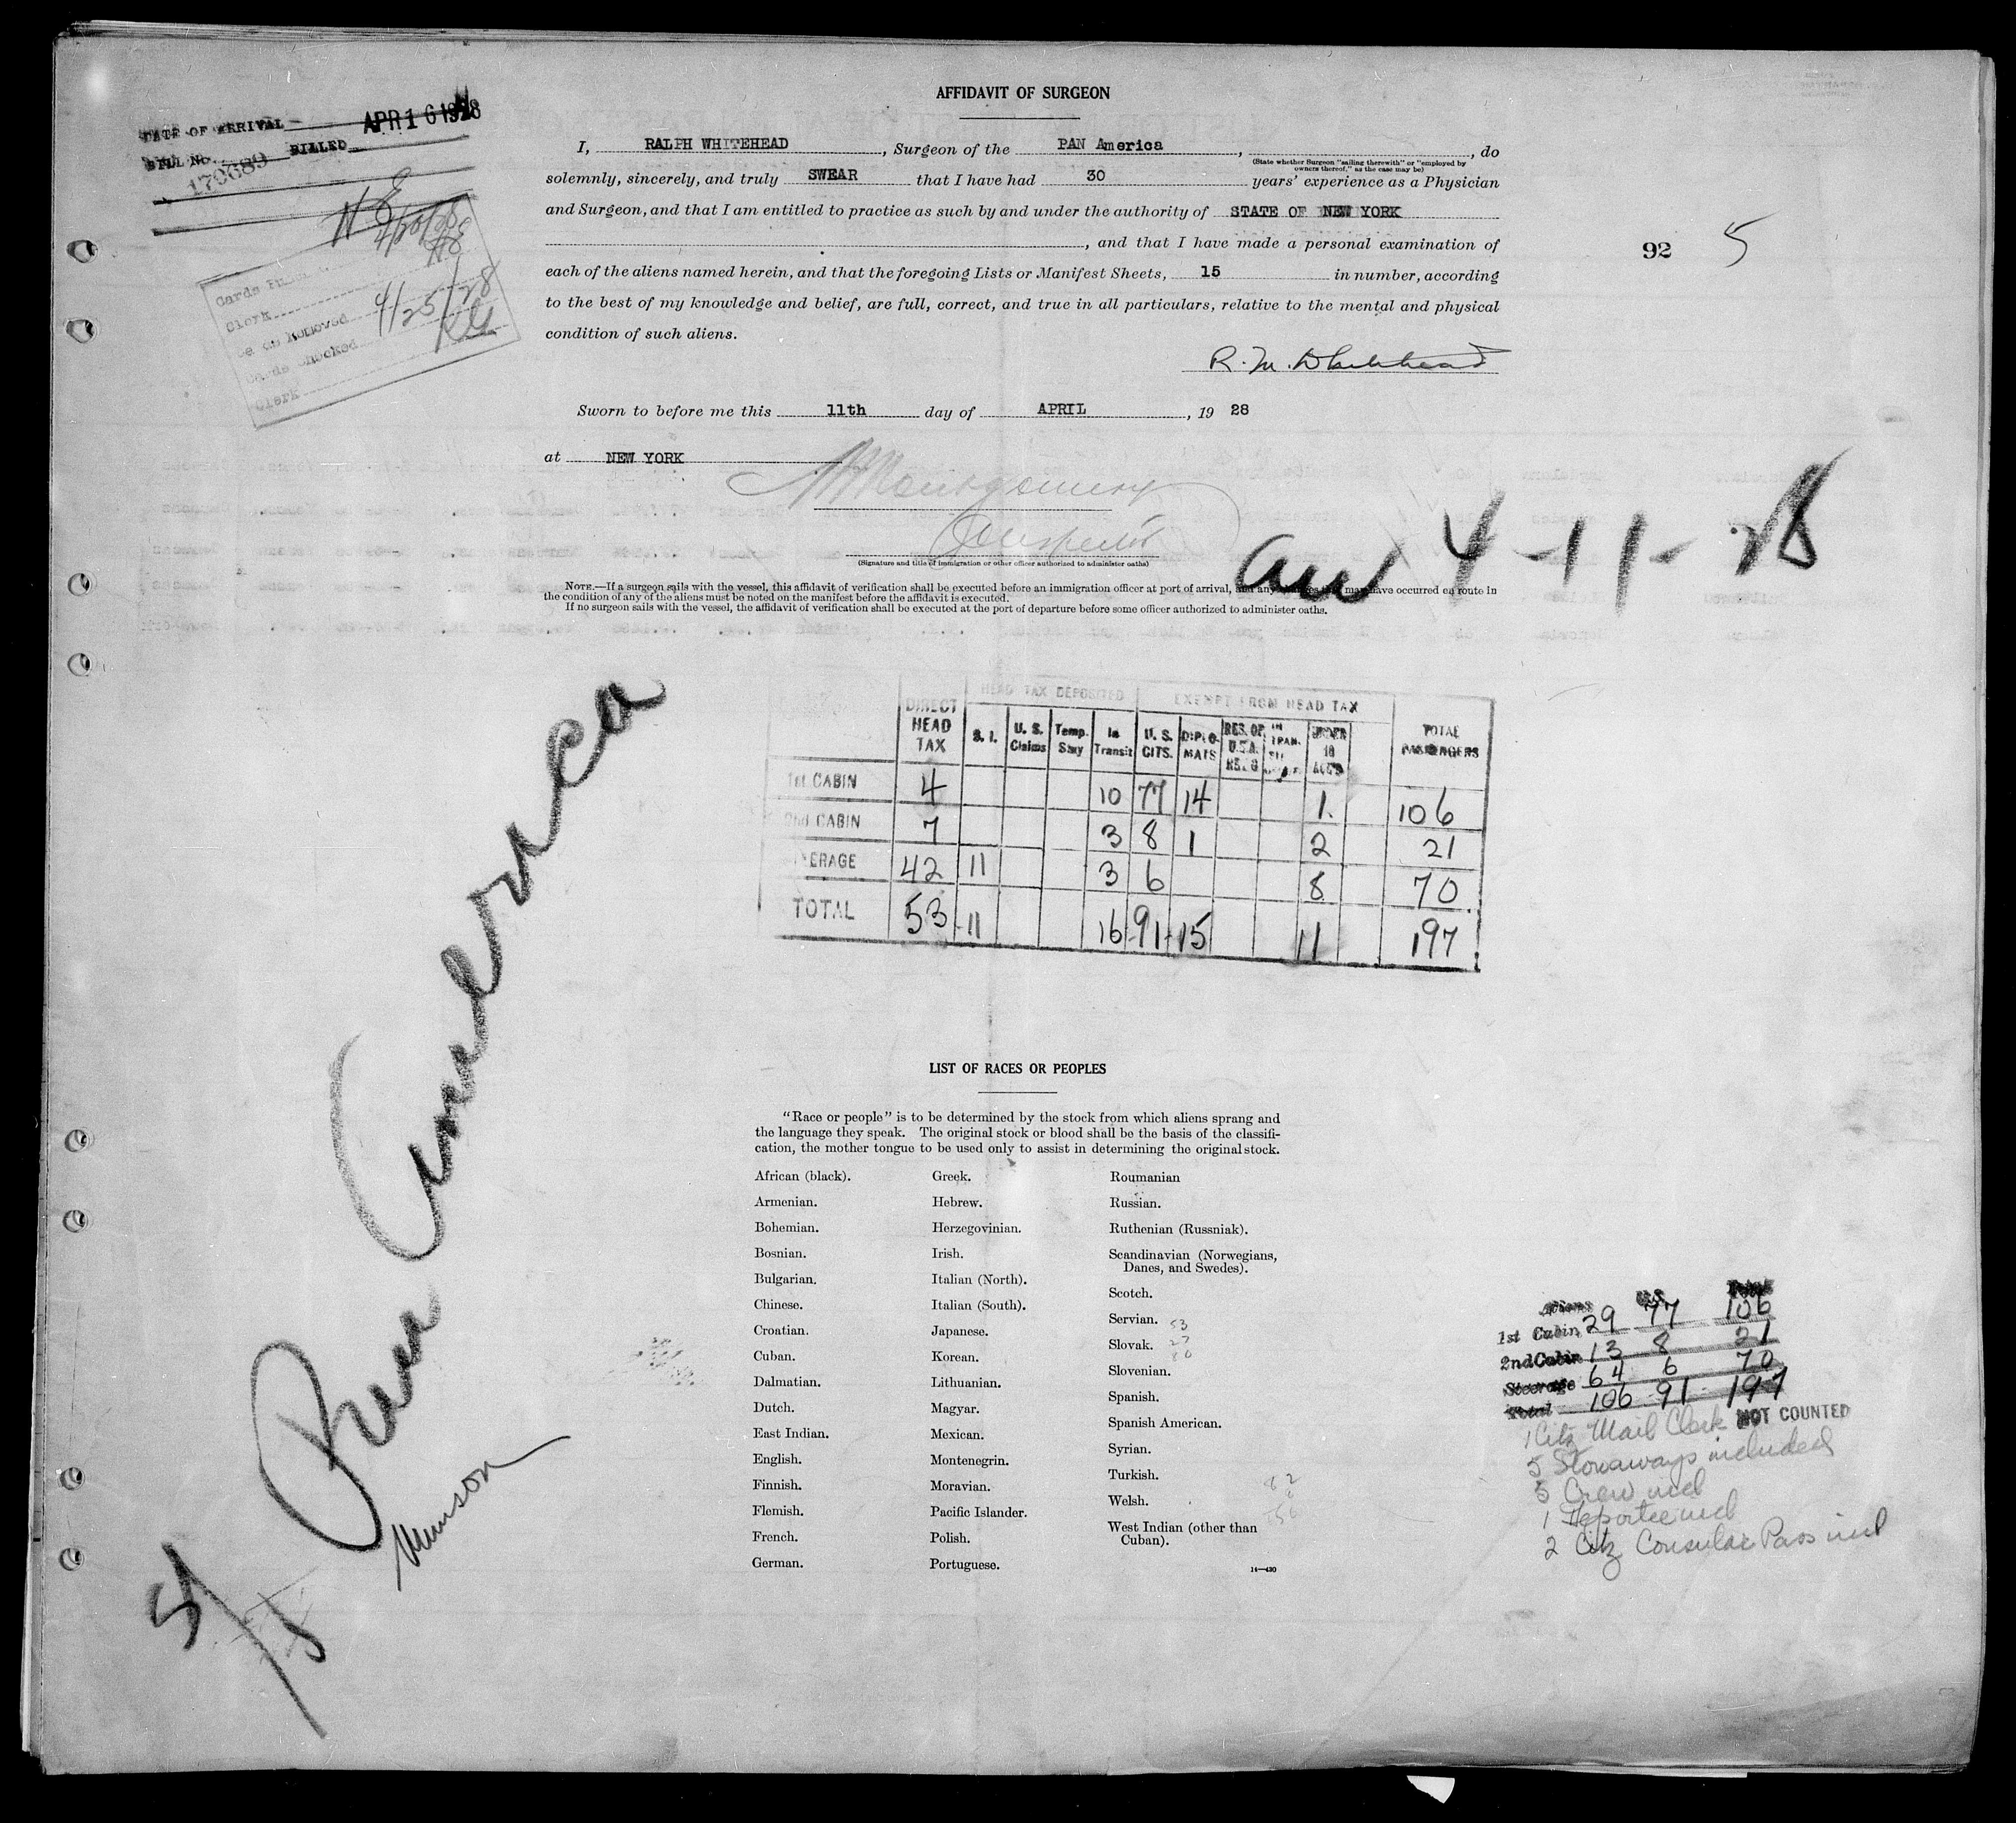 AFFIDAVIT OF SURGEON
DATE OF ARRIVAL APR 16 1928
BILL No. 179689 BILLED
I, RALPH WHITEHEAD, Surgeon of the PAN America, , do
(State whether Surgeon "sailing therewith" or "employed by owners thereof," as the case may be)
solemnly, sincerely, and truly SWEAR that I have had 30 years' experience as a Physician
and Surgeon, and that I am entitled to practice as such by and under the authority of STATE OF NEW YORK
, and that I have made a personal examination of
each of the aliens named herein, and that the foregoing Lists or Manifest Sheets, 15 in number, according
to the best of my knowledge and belief, are full, correct, and true in all particulars, relative to the mental and physical
condition of such aliens.
R. M. Whitehead
92 5
Clerk
4/25/28
Cards Checked
Clerk
Sworn to before me this 11th day of APRIL, 19 28
at NEW YORK
Montgomery
Inspector
(Signature and title of immigration or other officer authorized to administer oaths)
arr 4-11-28
NOTE.—If a surgeon sails with the vessel, this affidavit of verification shall be executed before an immigration officer at port of arrival, and any changes that may have occurred en route in
the condition of any of the aliens must be noted on the manifest before the affidavit is executed.
If no surgeon sails with the vessel, the affidavit of verification shall be executed at the port of departure before some officer authorized to administer oaths.
HEAD TAX DEPOSITED EXEMPT FROM HEAD TAX
DIRECT HEAD TAX S. I. U. S. Claims Temp. Stay In Transit U. S. CITS. DIPLOMATS RES. OF U.S.A. IN TRAN. UNDER 16 ACC'D TOTAL PASSENGERS
1st CABIN 4 10 77 14 1 106
2nd CABIN 7 3 8 1 2 21
STEERAGE 42 11 3 6 8 70
TOTAL 53 11 16 91 15 11 197
Pan America
Munson
LIST OF RACES OR PEOPLES
"Race or people" is to be determined by the stock from which aliens sprang and
the language they speak. The original stock or blood shall be the basis of the classifi-
cation, the mother tongue to be used only to assist in determining the original stock.
African (black).
Armenian.
Bohemian.
Bosnian.
Bulgarian.
Chinese.
Croatian.
Cuban.
Dalmatian.
Dutch.
East Indian.
English.
Finnish.
Flemish.
French.
German.
Greek.
Hebrew.
Herzegovinian.
Irish.
Italian (North).
Italian (South).
Japanese.
Korean.
Lithuanian.
Magyar.
Mexican.
Montenegrin.
Moravian.
Pacific Islander.
Polish.
Portuguese.
Roumanian
Russian.
Ruthenian (Russniak).
Scandinavian (Norwegians,
Danes, and Swedes).
Scotch.
Servian.
Slovak.
Slovenian.
Spanish.
Spanish American.
Syrian.
Turkish.
Welsh.
West Indian (other than
Cuban).
14—430
53
27
80
Aliens U.S. Total
1st Cabin 29 77 106
2nd Cabin 13 8 21
Steerage 64 6 70
Total 106 91 197
1 Citz Mail Clerk NOT COUNTED
5 Stowaways included
5 Crew incl
1 Deportee incl
2 Citz Consular Pass incl